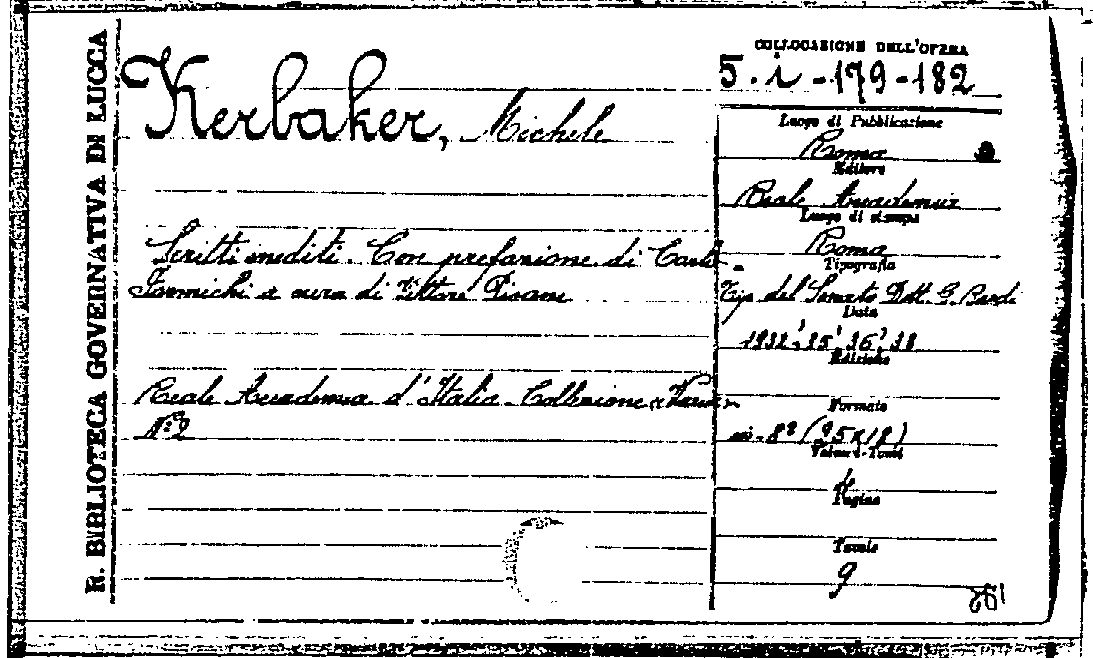 R. BIBLIOTECA GOVERNATIVA DI LUCCA
Kerbaker, Michele
Scritti inediti. Con prefazione di Carlo
Formichi a cura di Vittore Pisani
Reale Accademia d'Italia. Collezione "Varia"
N° 2
COLLOCAZIONE DELL'OPERA
5. i - 179 - 182
Luogo di Pubblicazione
Roma
Editore
Reale Accademia
Luogo di stampa
Roma
Tipografia
Tip. del Senato Dott. G. Bardi
Data
1932, 35, 36, 38
Edizione
Formato
in-8° (25x18)
Volumi-Tomi
4
Pagine
Tavole
9